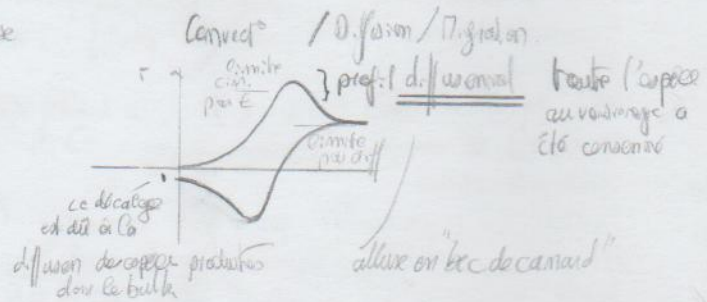 Convect° / Diffusion / Migration
I
limité
cin.
par E
} profil diffusionnel
toute l'espèce
au voisinage a
été consommé
limite
par diff
ce décalage
est dû à la
diffusion des espèces produites
dans le bulk
allure en "bec de canard"